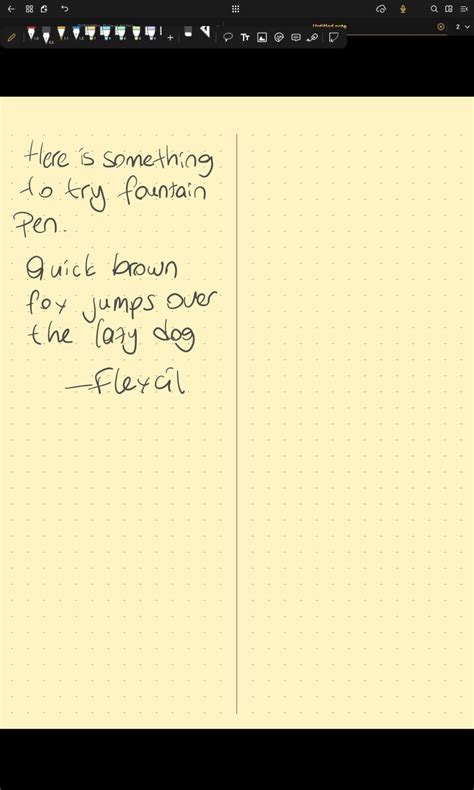 Untitled note
2
Tt
Here is something
to try fountain
Pen.
Quick brown
fox jumps over
the lazy dog
—Flexcil